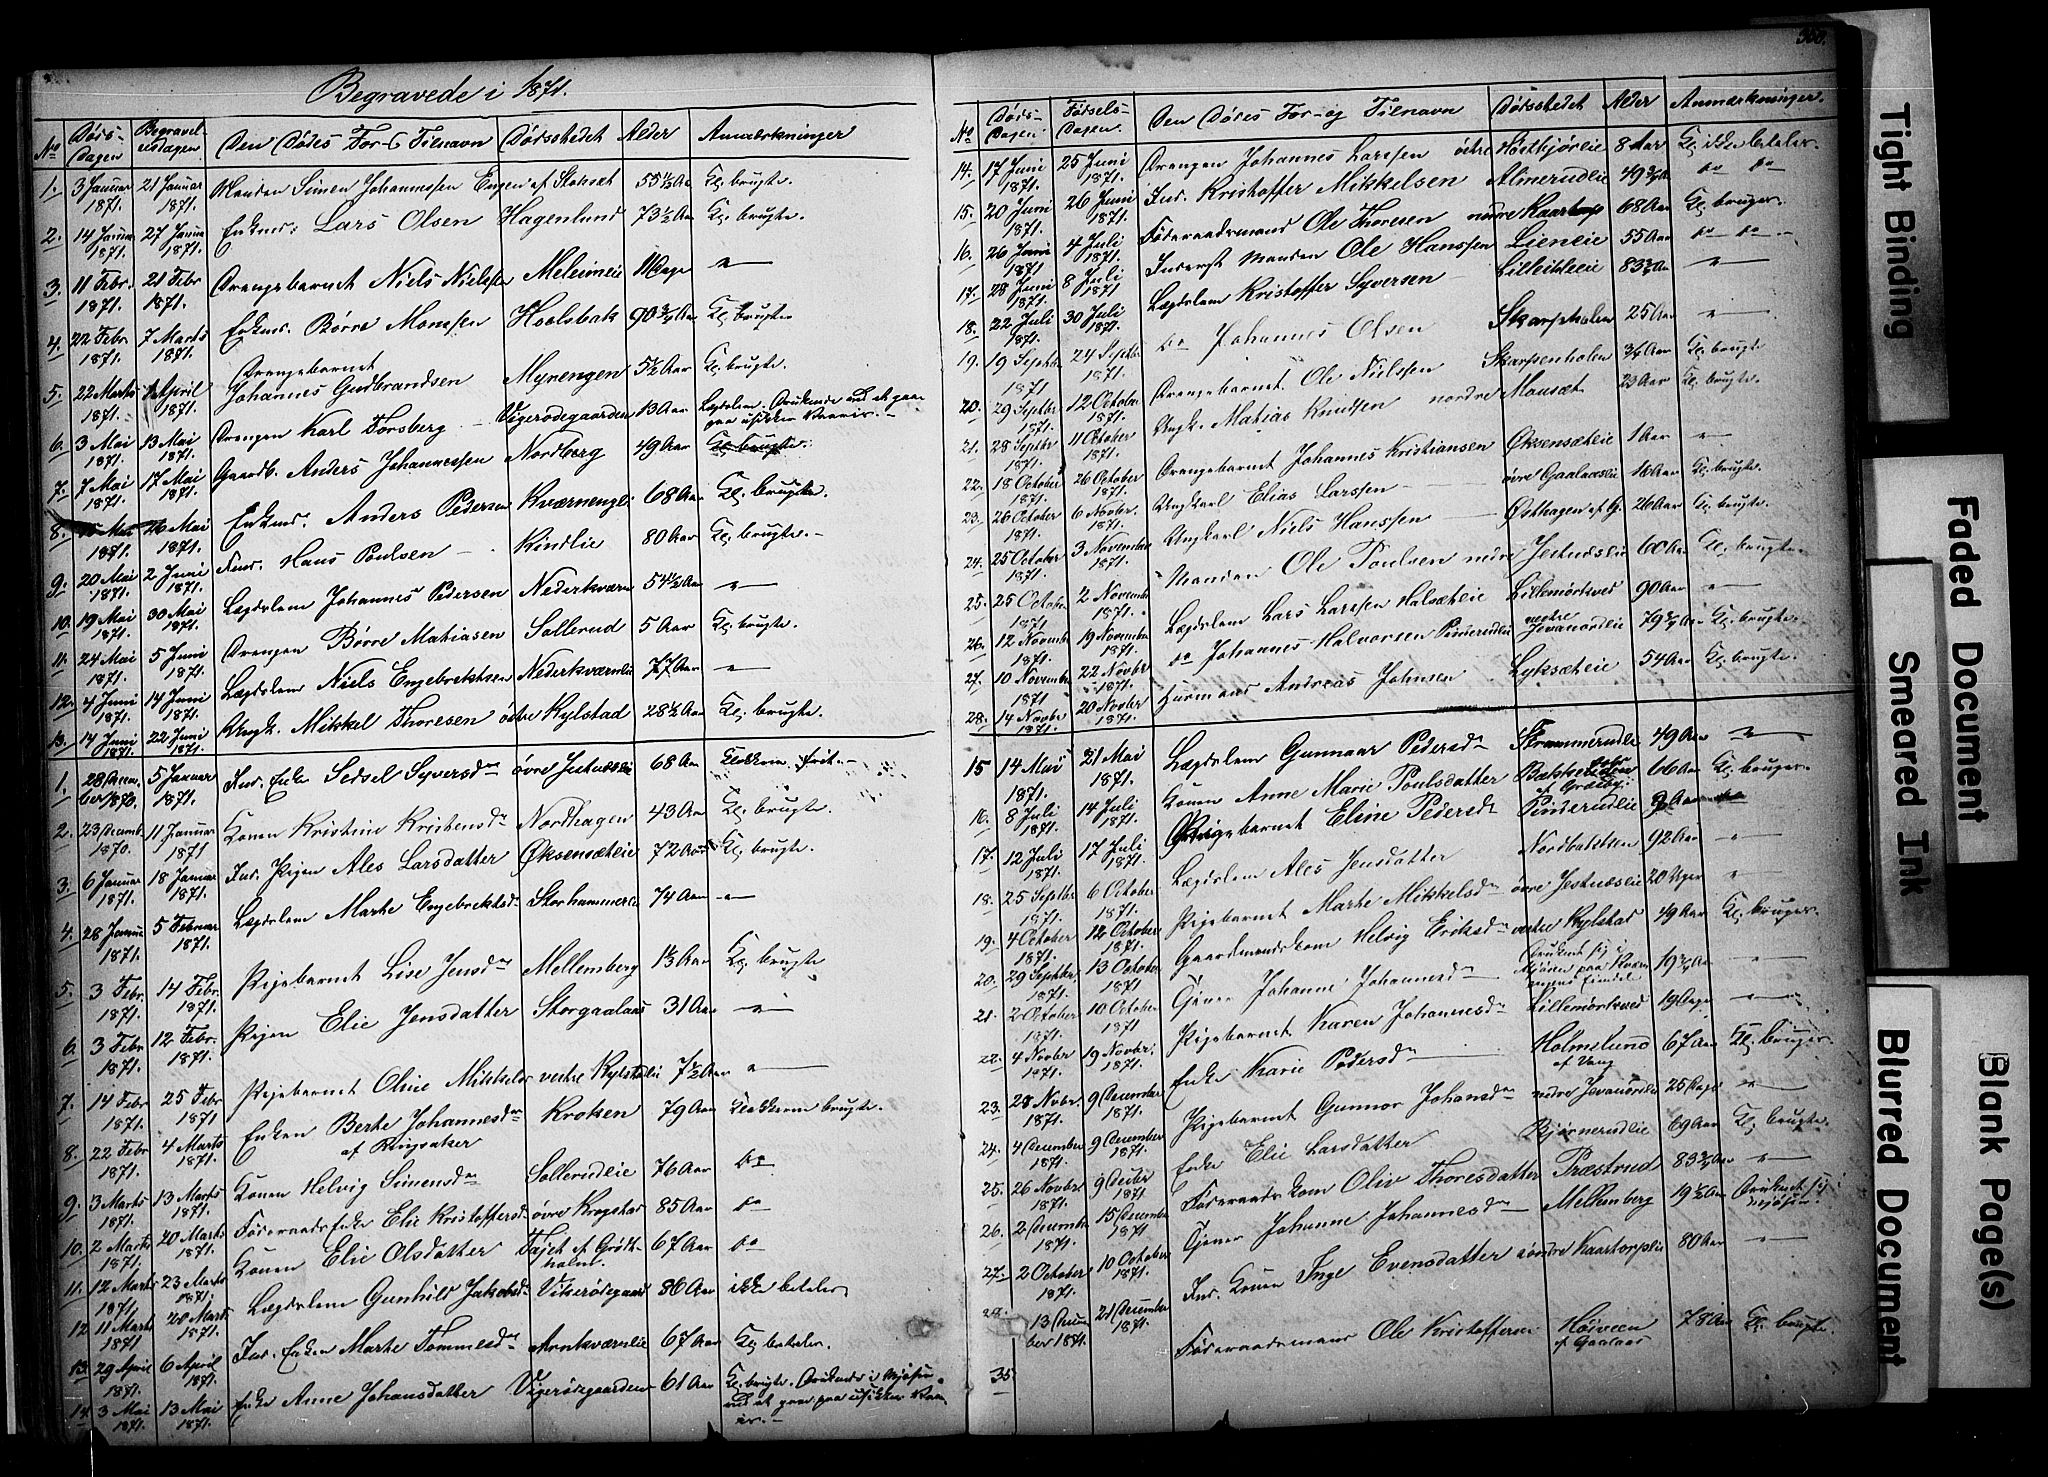 Begravede i 1871.
No Døds-Dagen Begravel-sesdagen Den Dødes For- & Tilnavn Dødsstedet Alder Anmærkninger
1. 3 Januar 1871. 21 Januar 1871. Manden Simen Johannessen Engen af Stoksæt 55 1/2 Aar Kl. brugte.
2. 14 Januar 1871. 27 Janua 1871. Enkem. Lars Olsen Hagenlund 73 1/2 Aar Kl. brugte.
3. 11 Febr. 1871. 21 Febr 1871. Drengebarnet Niels Nielssen 11 Dage "
4. 22 Febr 1871. 7 Marts 1871. Enkem. Børre Monssen Hoelsbak 90 3/4 Aar Kl. brugte
5. 22 Marts 1871. April 1871. Drengebarnet Johannes Gudbrandsen Myrengen 5 1/2 Aar Kl. brugte.
6. 3 Mai 1871. 13 Mai 1871. Drengen Karl Forsberg Vigerødegaarden 13 Aar Lægdslem. Druknede ved at gaa paa usikker Vaaris.
7. 7 Mai 1871. 17 Mai 1871. Gaardb. Anders Johannessen Nordberg 49 Aar Kl. brugte.
8. Mai 1871. 26 Mai 1871. Enkem. Anders Pedersen Kværnengli 68 Aar Kl. brugte.
9. 20 Mai 1871. 2 Juni 1871. Ind. Hans Poulsen Kindlie 80 Aar Kl. brugte.
10. 19 Mai 1871. 30 Mai 1871. Lægdslem Johannes Pedersen Nederkværn 54 1/2 Aar "
11. 24 Mai 1871. 5 Juni 1871. Drengen Børre Matiasen Sollerud 5 Aar Kl. brugte.
12. 4 Juni 1871. 14 Juni 1871. Lægdslem Niels Engebrektsen Nederkværnlie 77 Aar "
13. 14 Juni 1871. 22 Juni 1871. Ungk. Mikkel Thoresen østre Kylstad 28 1/2 Aar Kl. brugte.
1. 28 1870. 5 Januar 1871. Ind. Enke Sedsel Syversdr øvre Jestnæslie 68 Aar Klokkeren frit.
2. 23 Decemb. 1870. 11 Januar 1871 Konen Kristine Kristensdr Nordhagen 43 Aar Kl. brugte.
3. 6 Januar 1871. 18 Januar 1871. Ind. Pigen Ales Larsdatter Øksensætlie 72 Aar Kl. brugte.
4. 28 Janua 1871. 5 Februar 1871. Lægdslem Marte Engebrektsd. Storhammerlie 74 Aar "
5. 3 Febr. 1871. 14 Febr. 1871. Pigebarnet Lise Jensdr Mellemberg Aar Kl. brugte
6. 3 Febr 1871. 12 Febr. 1871. Pigen Elie Jensdatter Storgaalaas 31 Aar "
7. 14 Febr 1871. 25 Febr 1871 Pigebarnet Oline Mikkelsd vestre Kylstadlie 7 1/2 Aar "
8. 22 Febr 1871. 4 Marts 1871. Enken Berte Johannesdr af Ringsaker Kroken 79 Aar Klokkeren brugte.
9. 3 Marts 1871. 13 Marts 1871. Konen Helvig Simensdr Sollerudlie 76 Aar do
10. 2 Marts 1871. 20 Marts 1871. Føderaads Enke Elie Kristoffersd. øvre Krogstad 85 Aar do
11. 12 Marts 1871. 23 Marts 1871. Konen Elie Olsdatter Fajet af Grøtholm. 67 Aar do
12. 11 Marts 1871 20 Marts 1871. Lægdslem Gunhild Jakobsd. Vikerødegaard 86 Aar ikke betaler
13. 29 April 1871. 6 April 1871. Ind. Enken Marte Tommesdr Arnkværnlie 67 Aar Kl. betaler.
14. 3 Mai 1871. 13 Mai 1871. Enke Anne Johansdatter Vigerødegaarden 61 Aar Kl. brugte. Druknede i Mjøsen ved at gaa paa usikker Vaaris.
360.
No Døds-Dagen. Fødsels-Dagen. Den Dødes For- og Tilnavn Dødsstedet Alder Anmærkninger.
14. 17 Juni 1871. 25 Juni 1871. Drengen Johannes Larssen østre Høstbjørlie 8 Aar Kl. ikke betaler.
15. 20 Juni 1871. 26 Juni 1871. Ind. Kristoffer Mikkelsen Almerudlie 49 3/4 Aar do do
16. 26 Juni 1871 4 Juli 1871. Føderaadsmand Ole Thoresen nedre Kaartorp 68 Aar Kl. bruger.
17. 28 Juni 1871. 8 Juli 1871 Inderst Manden Ole Hanssen Lienlie 55 Aar do do
18. 22 Juli 1871. 30 Juli 1871. Lægdslem Kristoffer Syversen 83 3/4 Aar "
19. 19 Septbr 1871 24 Septbr 1871. do Johannes Olsen Skarpsholen 25 Aar "
20. 29 Septbr 1871. 12 October 1871. Drengebarnet Ole Nielssen Skarpsenholen 3/4 Aar Kl. brugte
21. 28 Septbr 1871. 11 October 1871. Ungk. Matias Knudsen nordre Mansæt 23 Aar Kl. brugte.
22. 18 October 1871. 26 October 1871. Drengebarnet Johannes Kristiansen Øksensætlie 1 Aar "
23. 26 October 1871. 6 Novbr. 1871. Ungkarl Elias Larssen øvre Gaalaaslie 18 Aar Kl. brugte.
24. 25 October 1871. 3 November 1871. Ungkarl Niels Hanssen Østhagen af G. 26 Aar Kl. brugte.
25. 25 October 1871 2 Novembr 1871. Manden Ole Poulsen nedre Jestnæslie 60 Aar Kl. brugte.
26. 12 Novembr 1871. 19 Novembr 1871. Lægdslem Lars Larssen Halsætlie Lillemørkved 90 Aar "
27. 10 Novembr 1871 22 Novbr 1871. do Johannes Halvorsen Pinderudlie nedre Jevanordlie 79 3/4 Aar Kl. brugte.
28. 14 Novbr 1871. 20 Novbr 1871. Husmand Andreas Johnsen Lyksætlie 54 Aar Kl. brugte.
15 14 Mai 1871. 21 Mai 1871. Lægdslem Gunnaar Pedersdr Strammerudlie 49 Aar "
16. 8 Juli 1871. 14 Juli 1871. Konen Anne Marie Poulsdatter 66 Aar Kl. bruger.
17. 12 Juli 1871. 17 Juli 1871. Pigebarnet Eline Pedersdr Pinderudlie Aar
18. 25 Septbr 1871. 6 October 1871. Lægdslem Ales Jensdatter Nordbakken 92 Aar "
19. 4 October 1871. 12 October 1871. Pigebarnet Marte Mikkelsdr øvre Jestnæslie 20 Uger "
20. 29 Septbr. 1871. 13 October 1871 Gaardmandskone Helvig Eriksdr vestre Kylstad 49 Aar Kl. bruger.
21. 2 October 1871. 10 October 1871 Tjener Johanne Johannesdr Druknet sig i Mjøsen paa Kværnengens Eindel 19 3/4 Aar "
22. 4 Novbr 1871. 19 Novbr. 1871. Pigebarnet Karen Johannesdr Lillemørkved 19 Dage "
23. 28 Novbr. 1871. 9 December 1871. Enke Karie Pedersdr Holmslund af Vang 67 Aar Kl. bruger
24. 4 December 1871. 9 December 1871. Pigebarnet Gunnor Johansdr nedre Jevanordlie 25 Dage "
25. 26 Novbr 1871. 9 Decbr 1871 Enke Elie Larsdatter Bjørnerudlie 69 Aar Kl. brugte.
26. 2 Decembr 1871. 15 Decembr 1871 Føderaads Kone Oliv Thoresdatter Præstrud 83 3/4 Aar "
27. 2 October 1871. 10 October 1871. Tjener Johanne Johannesdr Mellemberg 19 1/2 Aar Druknet sig i Mjøsen
28. 13 December 1871. 21 December 1871. Ind. Konen Inge Evensdatter søndre Kaartorplie 80 Aar "
35 Føderaadsmand Ole Kristoffersen Hødveen af Gaalaas 78 Aar Kl. brugte.
Tight Binding
Faded Document
Smeared Ink
Blank Page(s)
Blurred Document